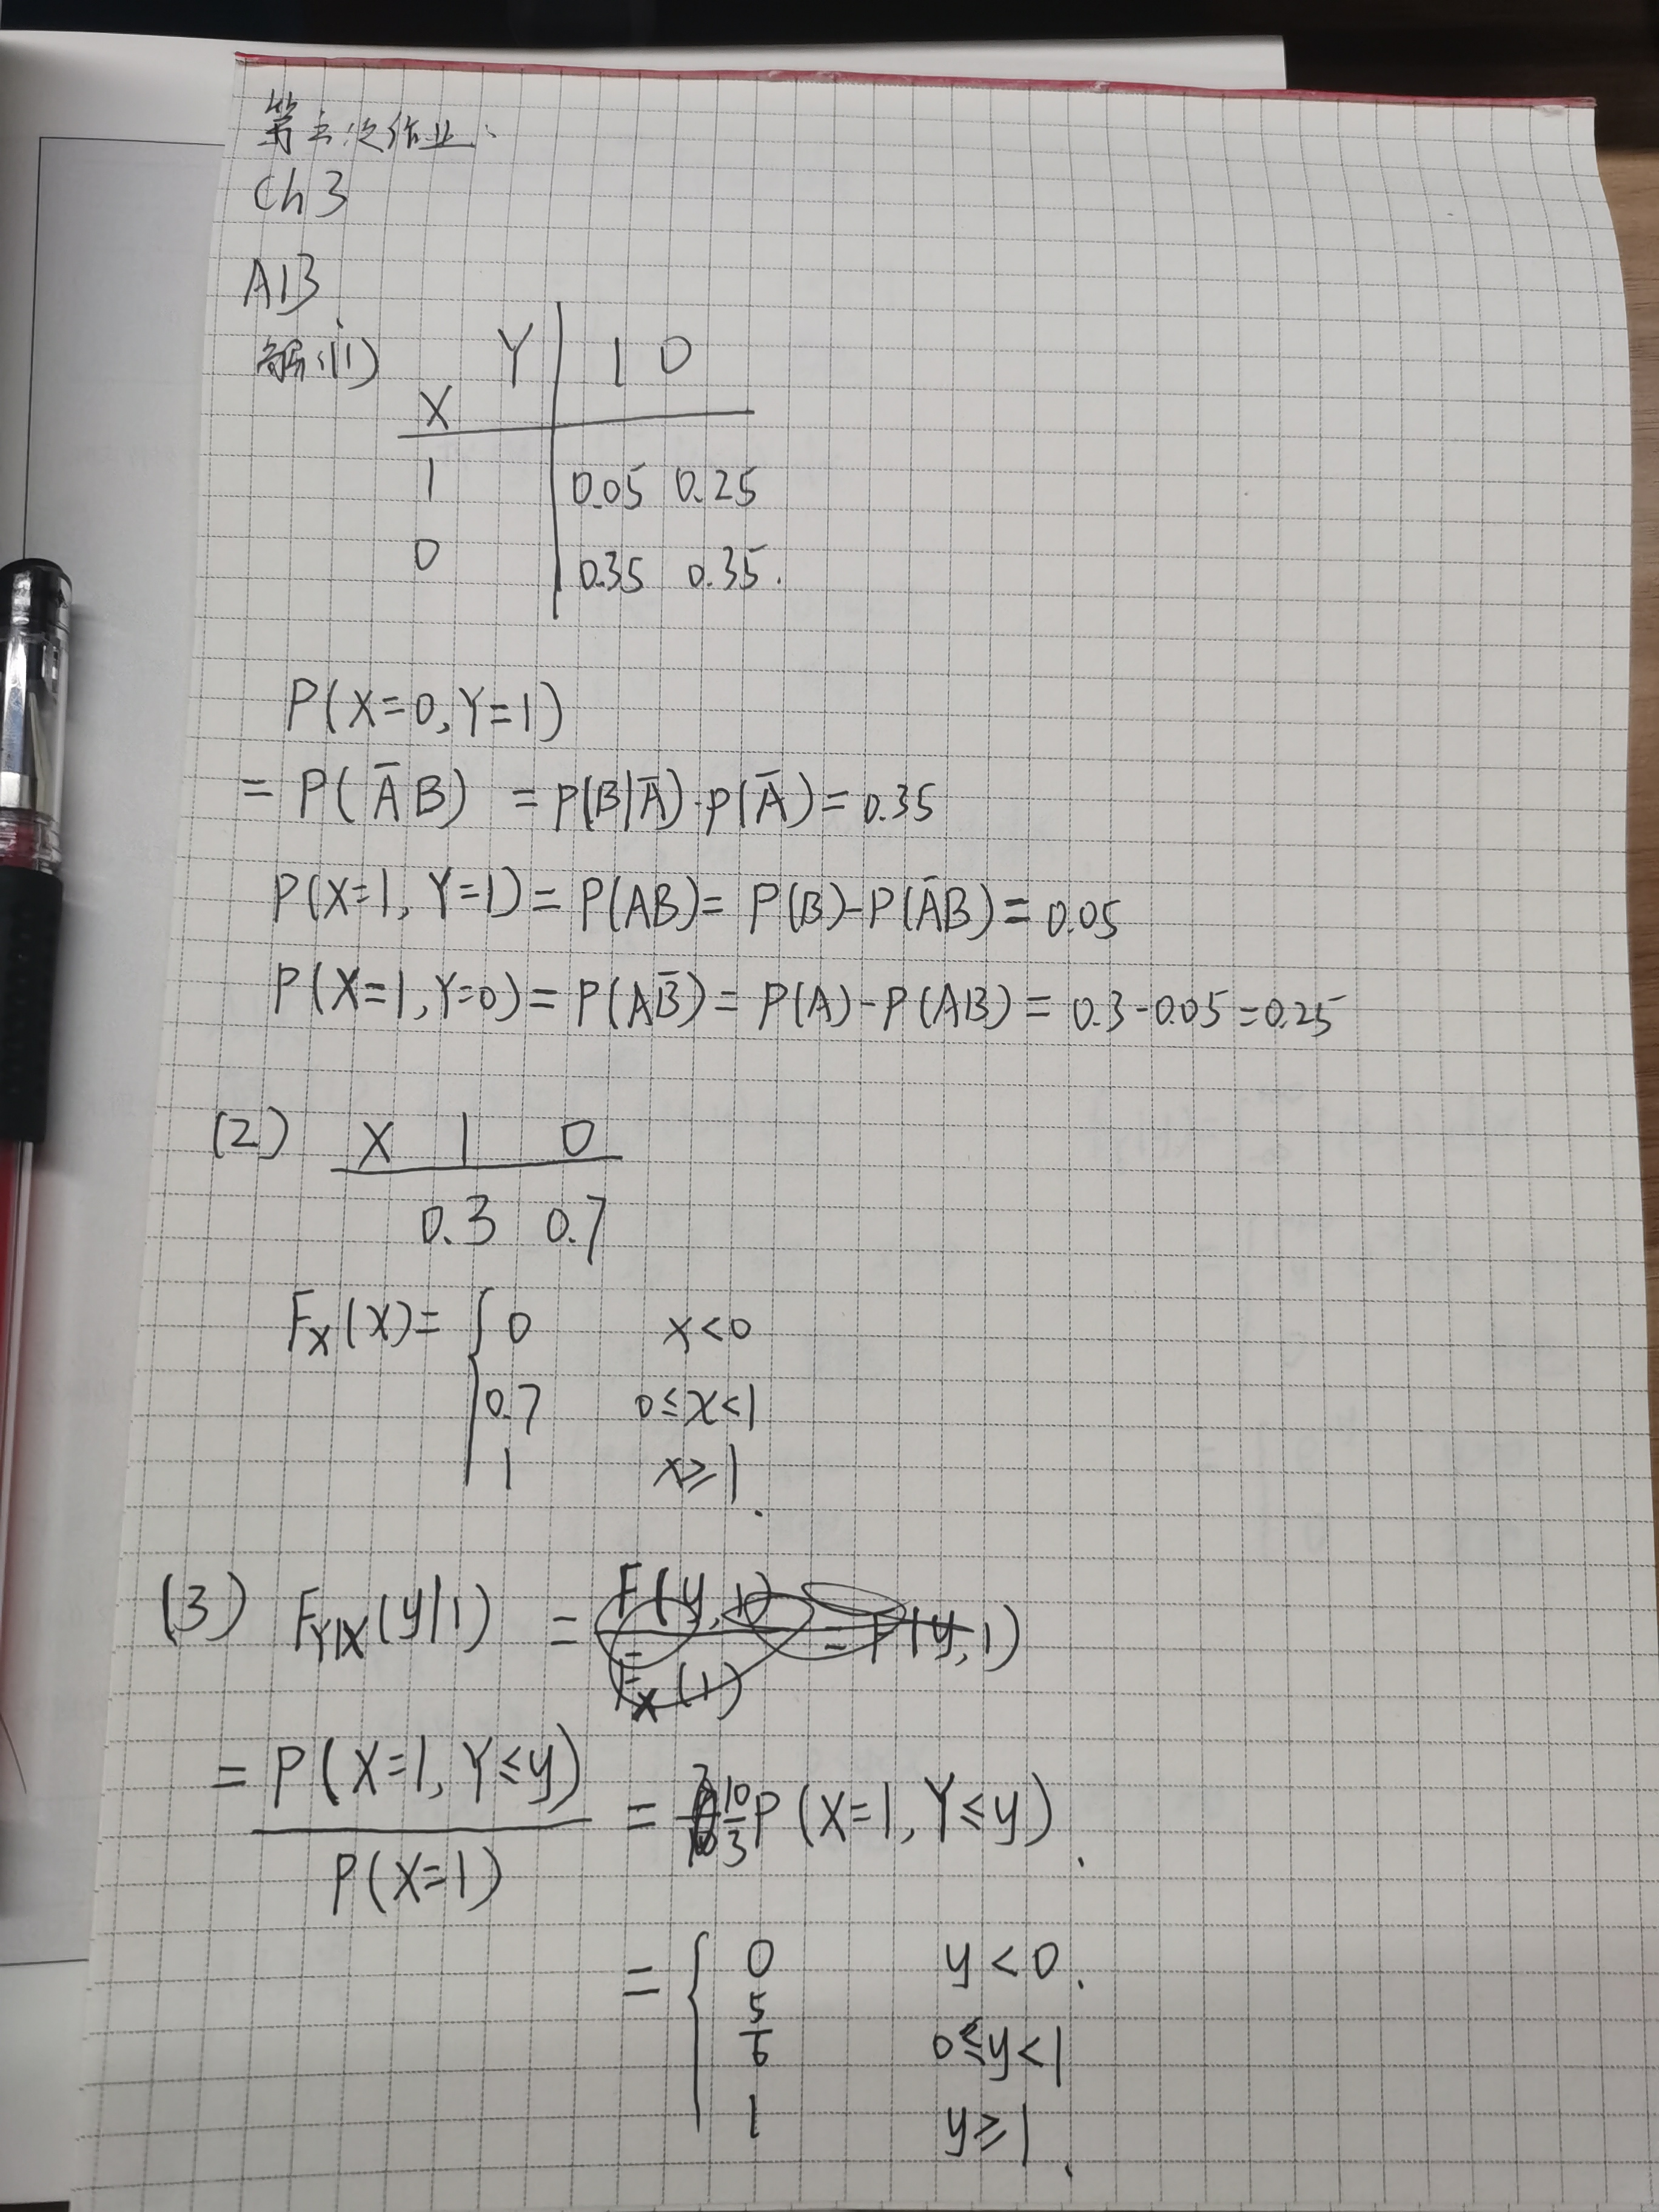 第五次作业:
Ch 3
A13
解:(1) Y | 1 0
X
1 | 0.05 0.25
0 | 0.35 0.35.
P(X=0,Y=1)
= P(A̅B) = P(B|A̅)·P(A̅) = 0.35
P(X=1, Y=1) = P(AB) = P(B)-P(A̅B) = 0.05
P(X=1,Y=0) = P(AB̅) = P(A)-P(AB) = 0.3-0.05=0.25
(2) X 1 0
0.3 0.7
F_X(x) = { 0 x<0
0.7 0≤x<1
1 x≥1.
(3) F_{Y|X}(y|1) =
= P(X=1, Y≤y) / P(X=1) = 10/3 P(X=1, Y≤y).
= { 0 y<0.
5/6 0≤y<1
1 y≥1.